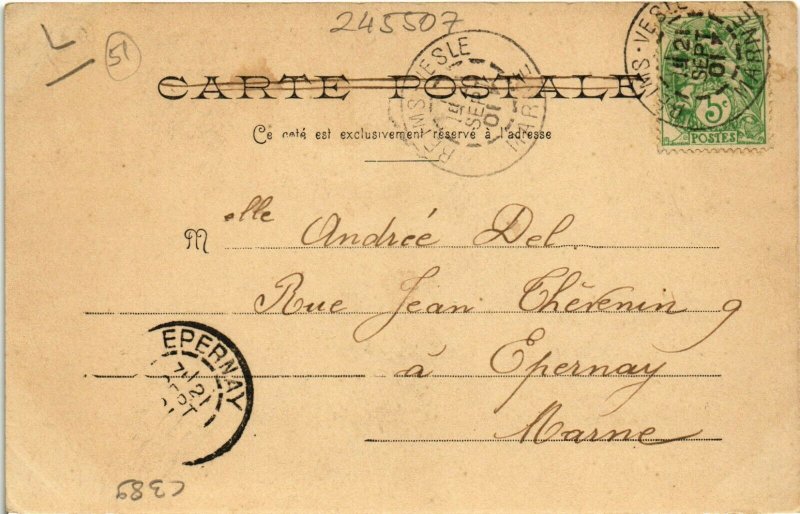 245507
51
CARTE POSTALE
Ce coté est exclusivement réservé à l'adresse
REIMS VESLE
SEPT
01
MARNE
REIMS - VESLE
21
SEPT
01
MARNE
5c
POSTES
Melle Andrée Del
Rue Jean Thévenin 9
à Epernay
Marne
EPERNAY
21
SEPT
C389